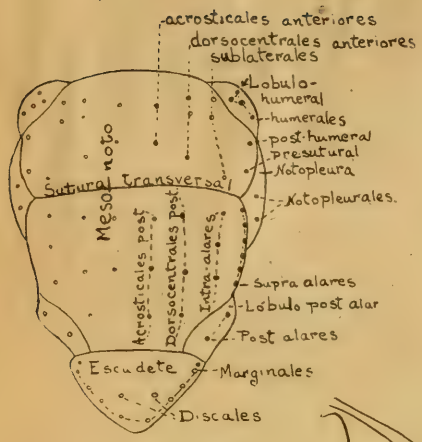 acrosticales anteriores
dorsocentrales anteriores
sublaterales
Lobulo-
humeral
humerales
post-humeral
presutural
Notopleura
Notopleurales.
Mesonoto
Sutura transversal
Acrosticales post
Dorsocentrales post.
Intra-alares
Supra alares
Lóbulo post alar
Post alares
Escudete
Marginales
Discales